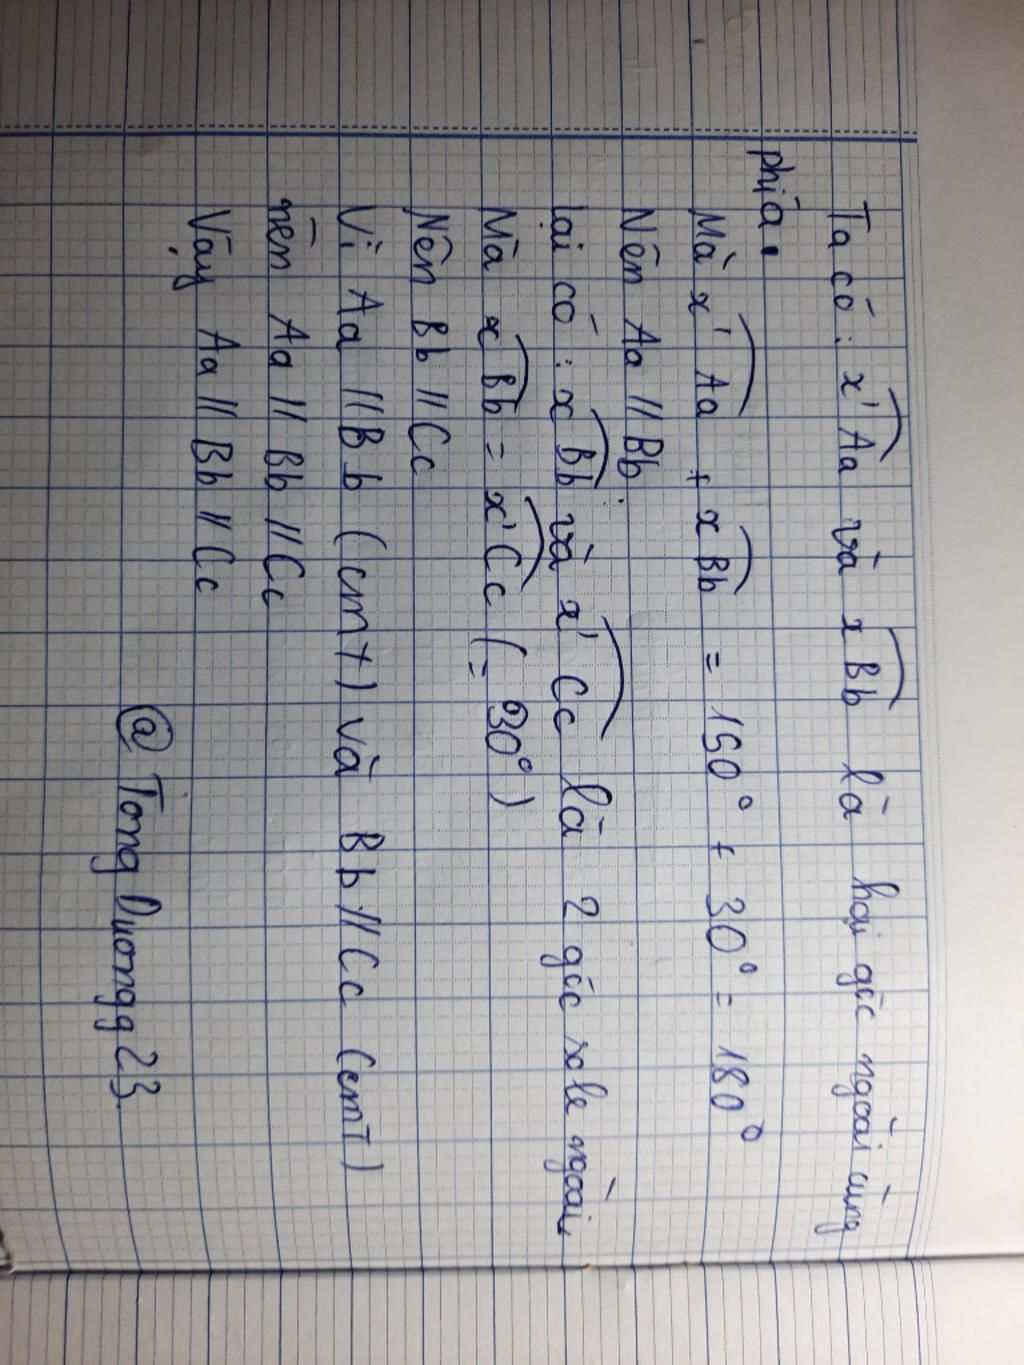 Ta có: x'Aa và xBb là hai góc ngoài cùng
phía.
Mà x'Aa + xBb = 150° + 30° = 180°
Nên Aa // Bb.
lại có: xBb và x'Cc là 2 góc sole ngoài
Mà xBb = x'Cc (= 30°)
Nên Bb // Cc
Vì Aa // Bb (cmt) và Bb // Cc (cmT)
nên Aa // Bb // Cc
Vậy Aa // Bb // Cc
@ Tong Duongg 23.